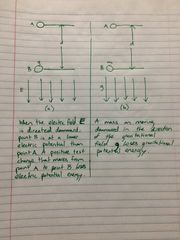 A
A
d
d
B
B
q
m
E
g
(a)
(b)
When the electric field E
is directed downward,
point B is at a lower
electric potential than
point A. A positive test
charge that moves from
point A to point B loses
electric potential energy.
A mass m moving
downward in the direction
of the gravitational
field g loses gravitational
potential energy.